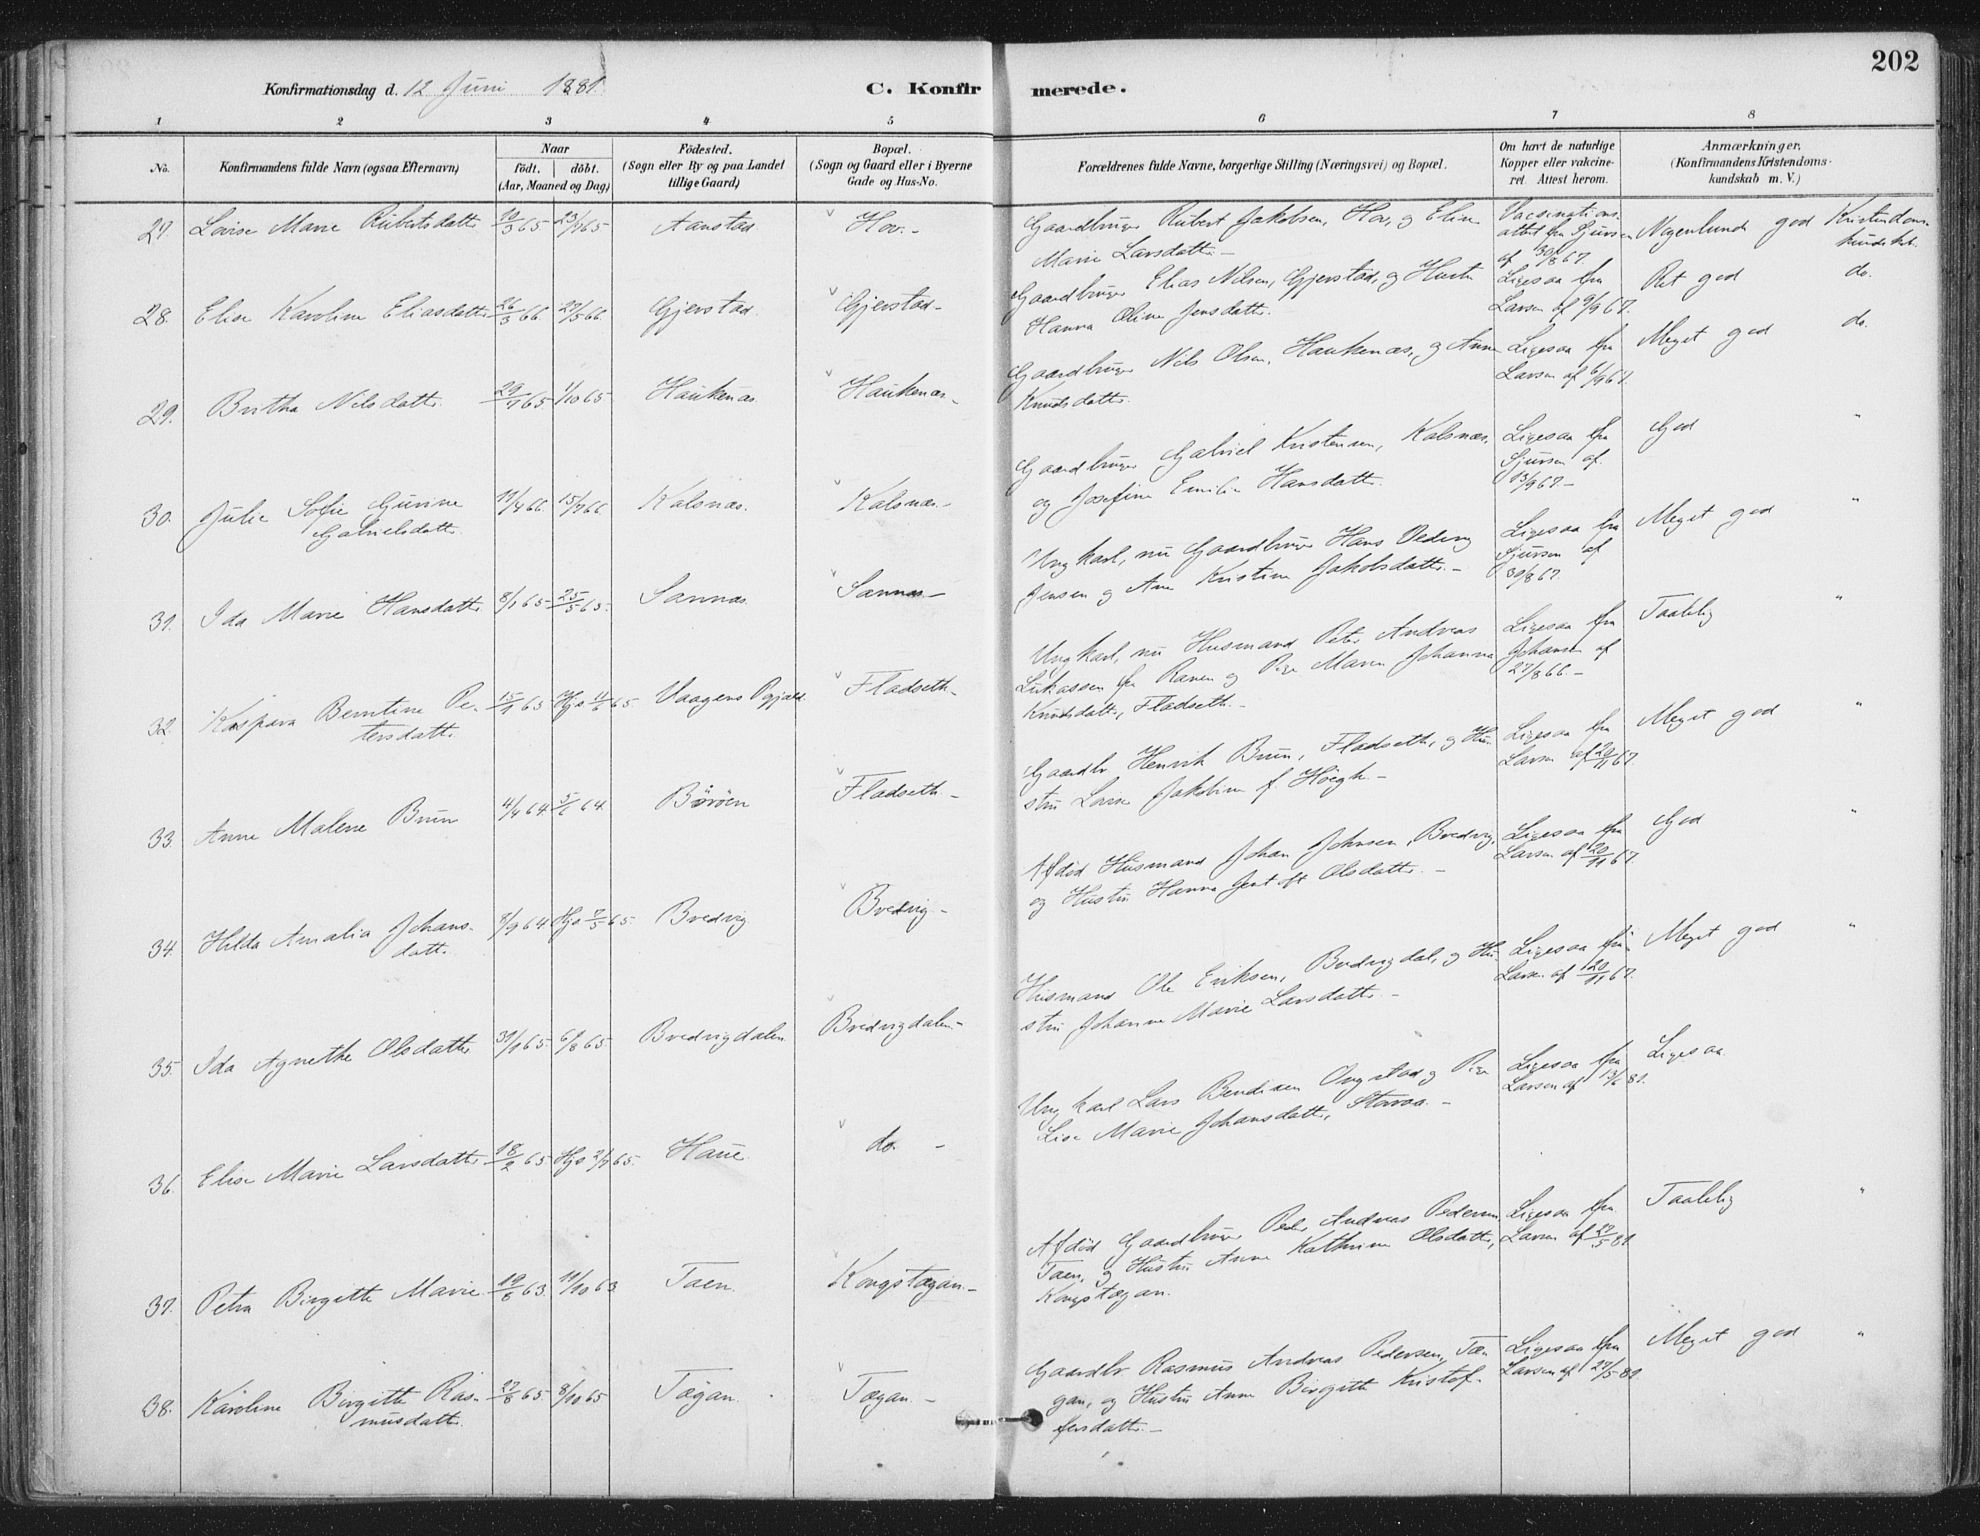 202
Konfirmationsdag d. 12 Juni 1881. C. Konfirmerede.
1 2 3 4 5 6 7 8
No. Konfirmandens fulde Navn (ogsaa Efternavn) Naar födt. döbt. (Aar, Maaned og Dag) Födested. (Sogn eller By og paa Landet tillige Gaard) Bopæl. (Sogn og Gaard eller i Byerne Gade og Hus-No. Forældrenes fulde Navne, borgerlige Stilling (Næringsvei) og Bopæl. Om havt de naturlige Kopper eller vakcineret. Attest herom. Anmærkninger. (Konfirmandens Kristendomskundskab m. V.)
27 Lovise Marie Rubertsdatter 65 65 Aanstad Hov.- Gaardbruger Rubert Jakobsen, Hov, og Elise Vaccinations- Nogenlunde god Kristendoms-
Marie Larsdatter.- attest fra Sjursen kundskab.
af 30/8 67.
28. Elise Karoline Eliasdatter 26/3 66 27/5 66 Gjerstad. Gjerstad- Gaardbruger Elias Nilsen, Gjerstad, og Hustru Ligesaa fra Ret god do.
Hanna Oline Jensdatter. Larsen af 9/9 67.
29. Britha Nilsdatter 29/7 65 1/10 65 Haukenæs Haukenæs- Gaardbruger Nils Olsen, Haukenæs, og Anne Ligesaa fra Meget god do.
Knudsdatter. Larsen af 6/9 67.
30. Julie Sofie Gurine 66 66 Kalsnæs. Kalsnæs- Gaardbruger Gabriel Kristensen, Kalsnæs, Ligesaa fra God "
Gabrielsdatter. og Josefine Emilie Hansdatter. Sjursen af
13/9 67.-
31. Ida Marie Hansdatter 8/1 65 25/5 65. Sannæs Sannæs- Ungkarl, nu Gaardbruger Hans Peder Ligesaa fra Meget god "
Jensen og Ane Kristine Jakobsdatter.- Sjursen af
30/8 67.
32. Kaspara Berntine Pe- 15/1 65 Hjd 11/6 65. Vaagens Pgjæld. Fladseth- Ungkarl, nu Husmand Peter Andreas Ligesaa fra Taalelig "
tersdatter. Lukassen fra Ranen og Pige Maren Johanna Johansen af
Knudsdatter, Fladseth.- 27/8 66.-
33. Anne Malene Bruun 4/4 64 64. Börøen Fladseth- Gaardbr. Henrik Bruun, Fladseth, og Hu- Ligesaa fra Meget god "
stru Lovise Jakobine f. Höegh.- Larsen af 20/11 67
34. Hilda Amalia Johans- 8/9 64 Hjd 7/5 65. Bredvig Bredvig- Afdød Husmand Johan Johnsen, Bredvig, Ligesaa fra God "
datter. og Hustru Hanna Olsdatter.- Larsen af 20/11 67
35. Ida Agnethe Olsdatter 31/1 65. 6/8 65 Bredvigdalen Bredvigdalen- Husmand Ole Eriksen, Bredvigdal, og Hu- Ligesaa fra Meget god "
stru Johanne Marie Larsdatter.- Larsen af 20/11 67.
36. Elise Marie Larsdatter 18/2 65 Hjd 2/7 65. Haue. do. - Ungkarl Lars Bendixen Ongstad og Pige Ligesaa fra Ligesaa.
Lise Marie Johansdatter, Storraa.- Larsen af 13/6 81.
37. Petra Birgitte Marie 19/8 63. 11/10 63. Taen. Kongstægan- Afdød Gaardbruger Peder Andreas Pedersen, Ligesaa fra Taalelig "
Taen, og Hustru Anne Kathrine Olsdatter, Larsen af 27/5 81
Kongstægan.
38. Karoline Birgitte Ras- 27/8 65 8/10 65 Tægan. Tægan- Gaardbr Rasmus Andreas Pedersen, Tæ- Ligesaa fra Meget god "
musdatter. gan, og Hustru Anne Birgitte Kristof- Larsen af 27/5 81
fersdatter.-